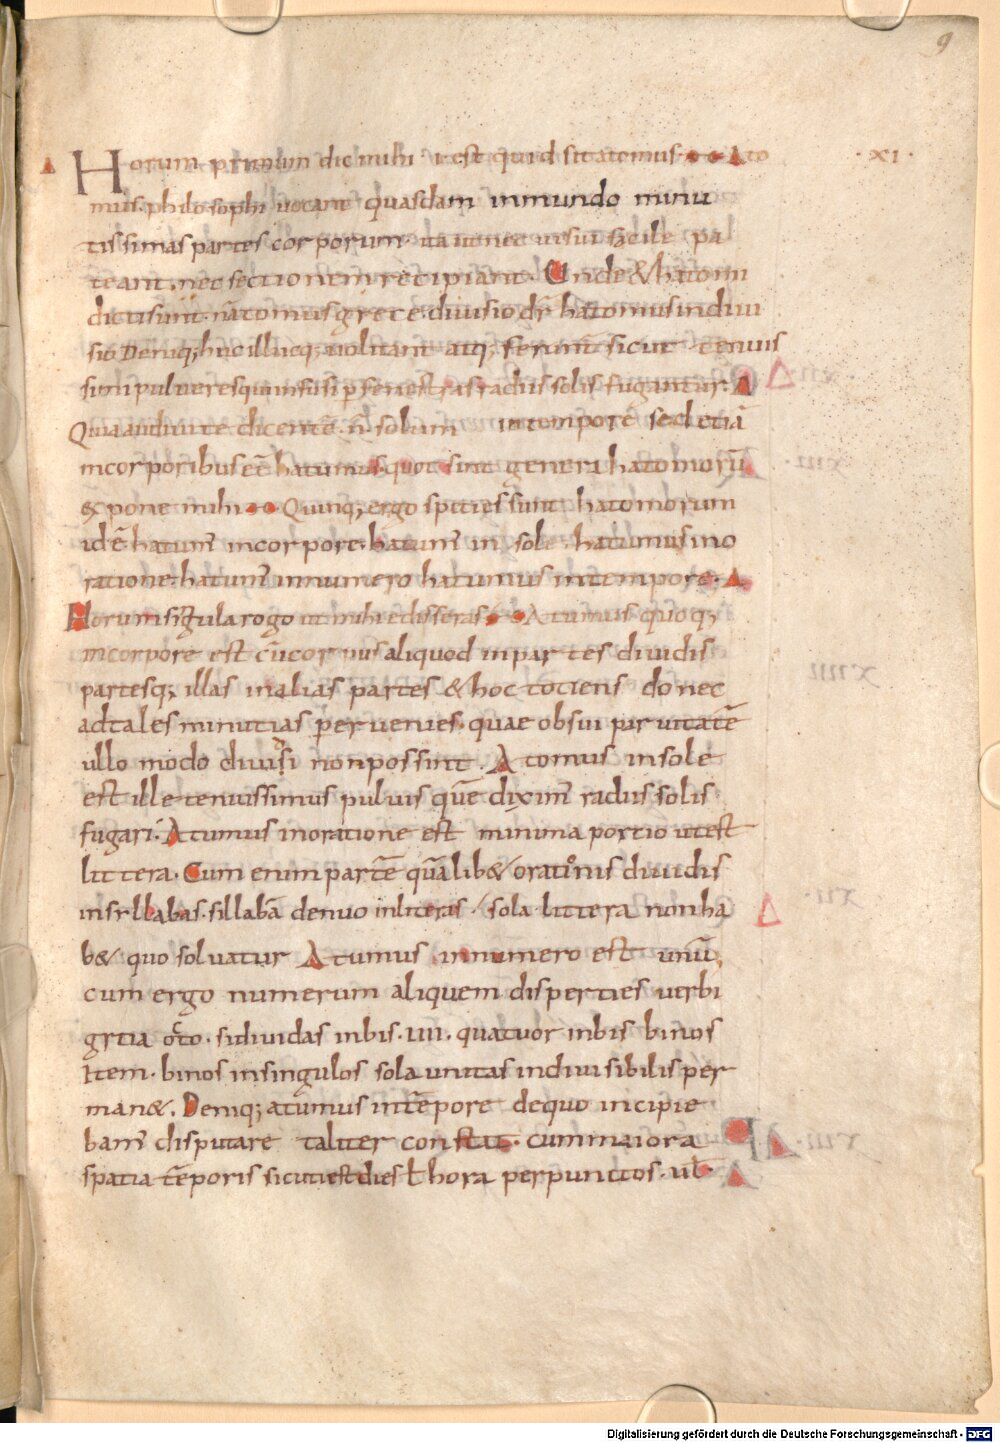 9
Horum primum dic mihi · id est quid sit atomus · Ato · XI ·
mus · philosophi vocant quasdam inmundo minu
tissimas partes corporum · ita ut nec visui facile pa
teant · nec sectionem recipiant · Unde & hatomi
dicti sunt · nā tomus grece divisio dr̄ hatomus indivi
sio Deniq; huc illucq; volitant atq; ferunt sicut tenuis
simi pulveres qui infusi p̄ fenestras radiis solis fugantur · Δ
Quia audivi te dicentē · n̄ solum in tempore sed etiā
in corporibus eē hatumus · quot sint genera hatomorū
expone mihi · Quinq; ergo species sunt hatomorum
id ē hatum̄ in corpore · hatum̄ in sole · hatumus in o
ratione · hatum̄ in numero hatumus in tempore · Δ
Horum sigula rogo ut mihi edisseras · Atumus quoq;
in corpore est cū corpus aliquod in partes dividis
partesq; illas in alias partes & hoc totiens donec
ad tales minutias pervenies · quae ob sui parvitatē
ullo modo divisi non possint · Atomus in sole
est ille tenuissimus pulvis quē dixim̄ radiis solis
fugari · Atumus in oratione est minima portio ut est
littera · Cum enim partē quālib& orationis dividis
in sillabas · sillabā denuo in literas / sola littera non ha
b& quo solvatur Atumus in numero est unū,
cum ergo numerum aliquem disperties verbi
grtia octo · si dividas in bis · IIII · quatuor in bis binos
Item · binos in singulos sola unitas indivisibilis per
man& · Deniq; atumus in tēpore de quo incipie
bam̄ disputare taliter constat · cum maiora
spatia tēporis sicuti est dies ł hora per punctos · vel
Digitalisierung gefördert durch die Deutsche Forschungsgemeinschaft - DFG